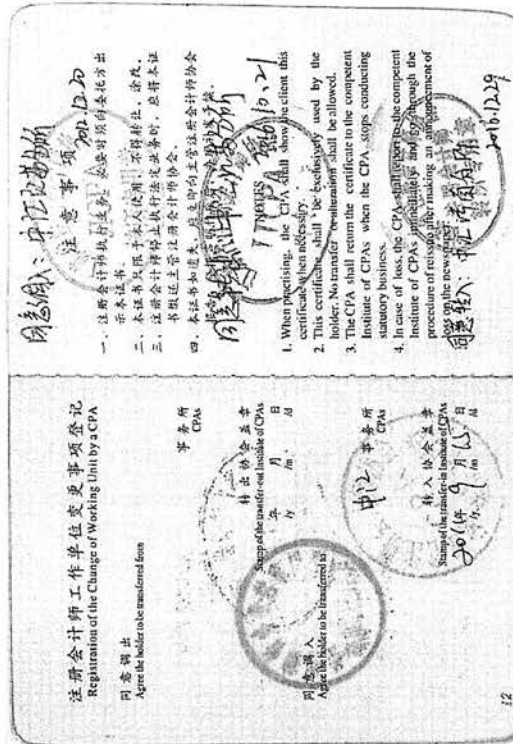 注册会计师工作单位变更事项登记
Registration of the Change of Working Unit by a CPA
同意调出
Agree the holder to be transferred from
事务所
CPAs
转出协会盖章
Stamp of the transfer-out Institute of CPAs
年 月 日
/y /m /d
同意调入
Agree the holder to be transferred to
中汇 事务所
CPAs
转入协会盖章
Stamp of the transfer-in Institute of CPAs
2011年 9月 15日
/y /m /d
12
2012.12.20
注意事项
一、注册会计师执行业务,必要时须向委托方出
示本证书。
二、本证书只限于本人使用,不得转让、涂改。
三、注册会计师停止执行法定业务时,应将本证
书缴还主管注册会计师协会。
四、本证书如遗失,应立即向主管注册会计师协会
NOTES
1. When practising, the CPA shall show the client this
certificate when necessary.
2. This certificate shall be exclusively used by the
holder. No transfer or alteration shall be allowed.
3. The CPA shall return the certificate to the competent
Institute of CPAs when the CPA stops conducting
statutory business.
4. In case of loss, the CPA shall report to the competent
Institute of CPAs immediately and go through the
procedure of reissue after making an announcement of
loss on the newspaper.
同意转入:中汇
2016.12.29